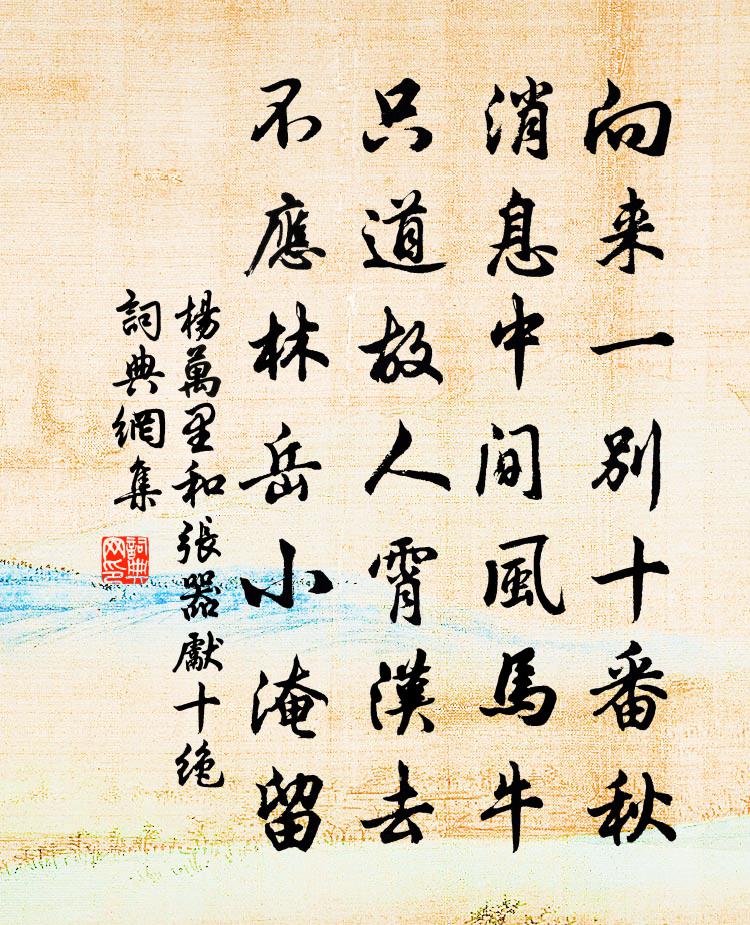 向来一别十番秋
消息中间風馬牛
只道故人霄漢去
不應林岳小淹留
楊萬里和張器獻十绝
詞典網集
詞典
网印